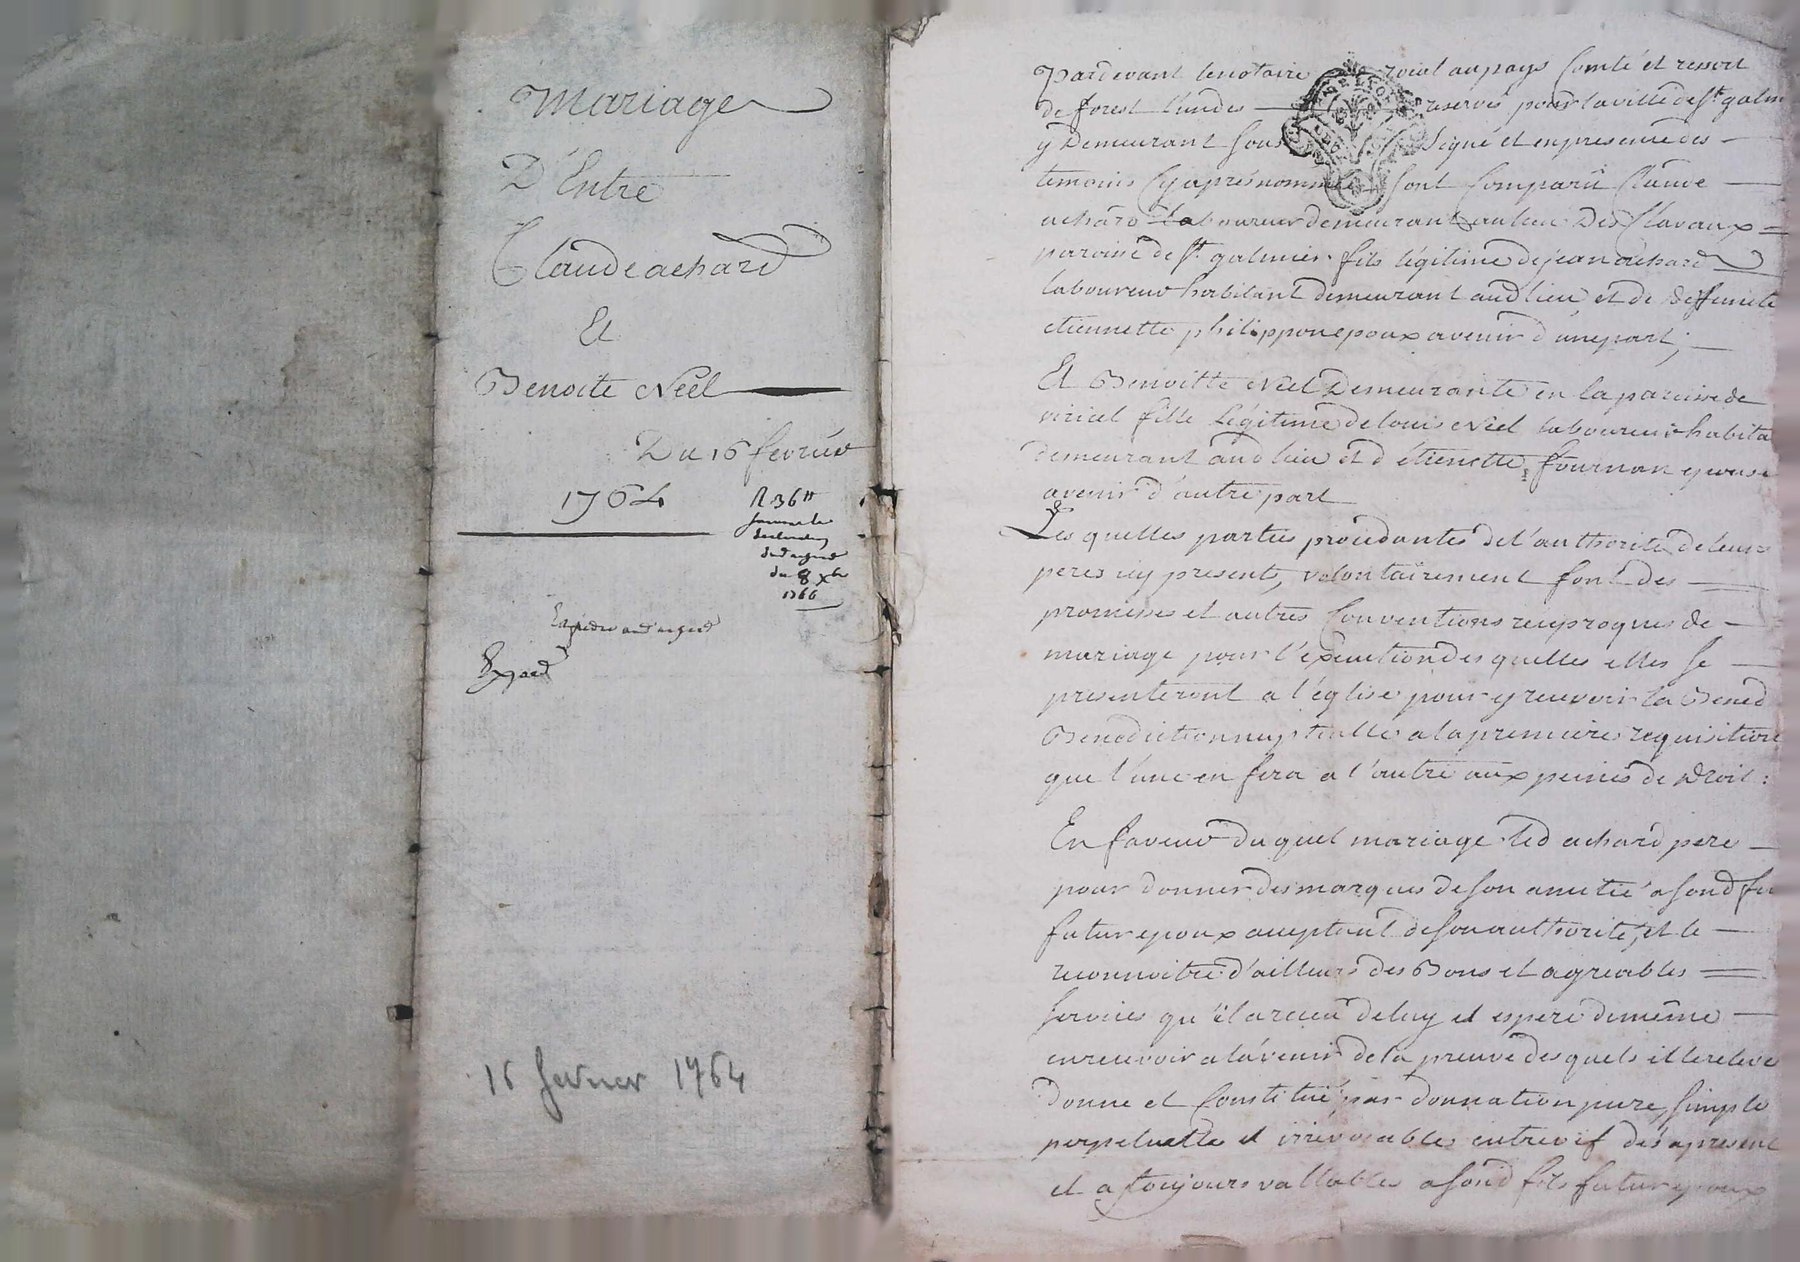 Mariage
D'Entre
Claude achard
Et
Benoite Néel
Du 16 fevrier
1764
R 36tt
du 8 xbre
1766
Exped
16 fevrier 1764
Pardevant le notaire roial au pays Comté et ressort
de forest l'un des reservé pour la ville de St galm
y Demeurant sous signé et en presence des
temoins Cy aprés nommés sont Comparû Claude
achard laboureur demeurant au lieu Des Clavaux
paroisse de St galmier fils légitime de jean achard
laboureur habitant demeurant aud lieu et de deffunte
etiennette philippon epoux avenir d'une part;
Et Benoitte Néel Demeurante en la paroisse de
viricel fille Légitime de louis Néel laboureur habita
demeurant aud lieu et d'étienette fournon epouse
avenir d'autre part
Les quelles parties procedantes de l'authorité de leurs
peres icy presents, volontairement font des
promesses et autres Conventions reciproques de
mariage pour l'execution des quelles elles se
presenteront a l'église pour y recevoir la Bened
Benediction nuptialle a la premiere requisition
que l'une en fera a l'autre aux peines de Droit:
En faveur du quel mariage led achard pere
pour donner des marques de son amitié a sond fis
futur epoux acceptant de son authorité, et le
reconnoitre d'ailleurs des Bons et agréables
services qu'il a receu de luy et espere de même
en recevoir a lavenir de la preuve des quels il le releve
donne et Constitué par donnation pure, simple
perpetuelle et irrevocable entrevif dés apresent
et a toujours vallable a sond fils futur epoux